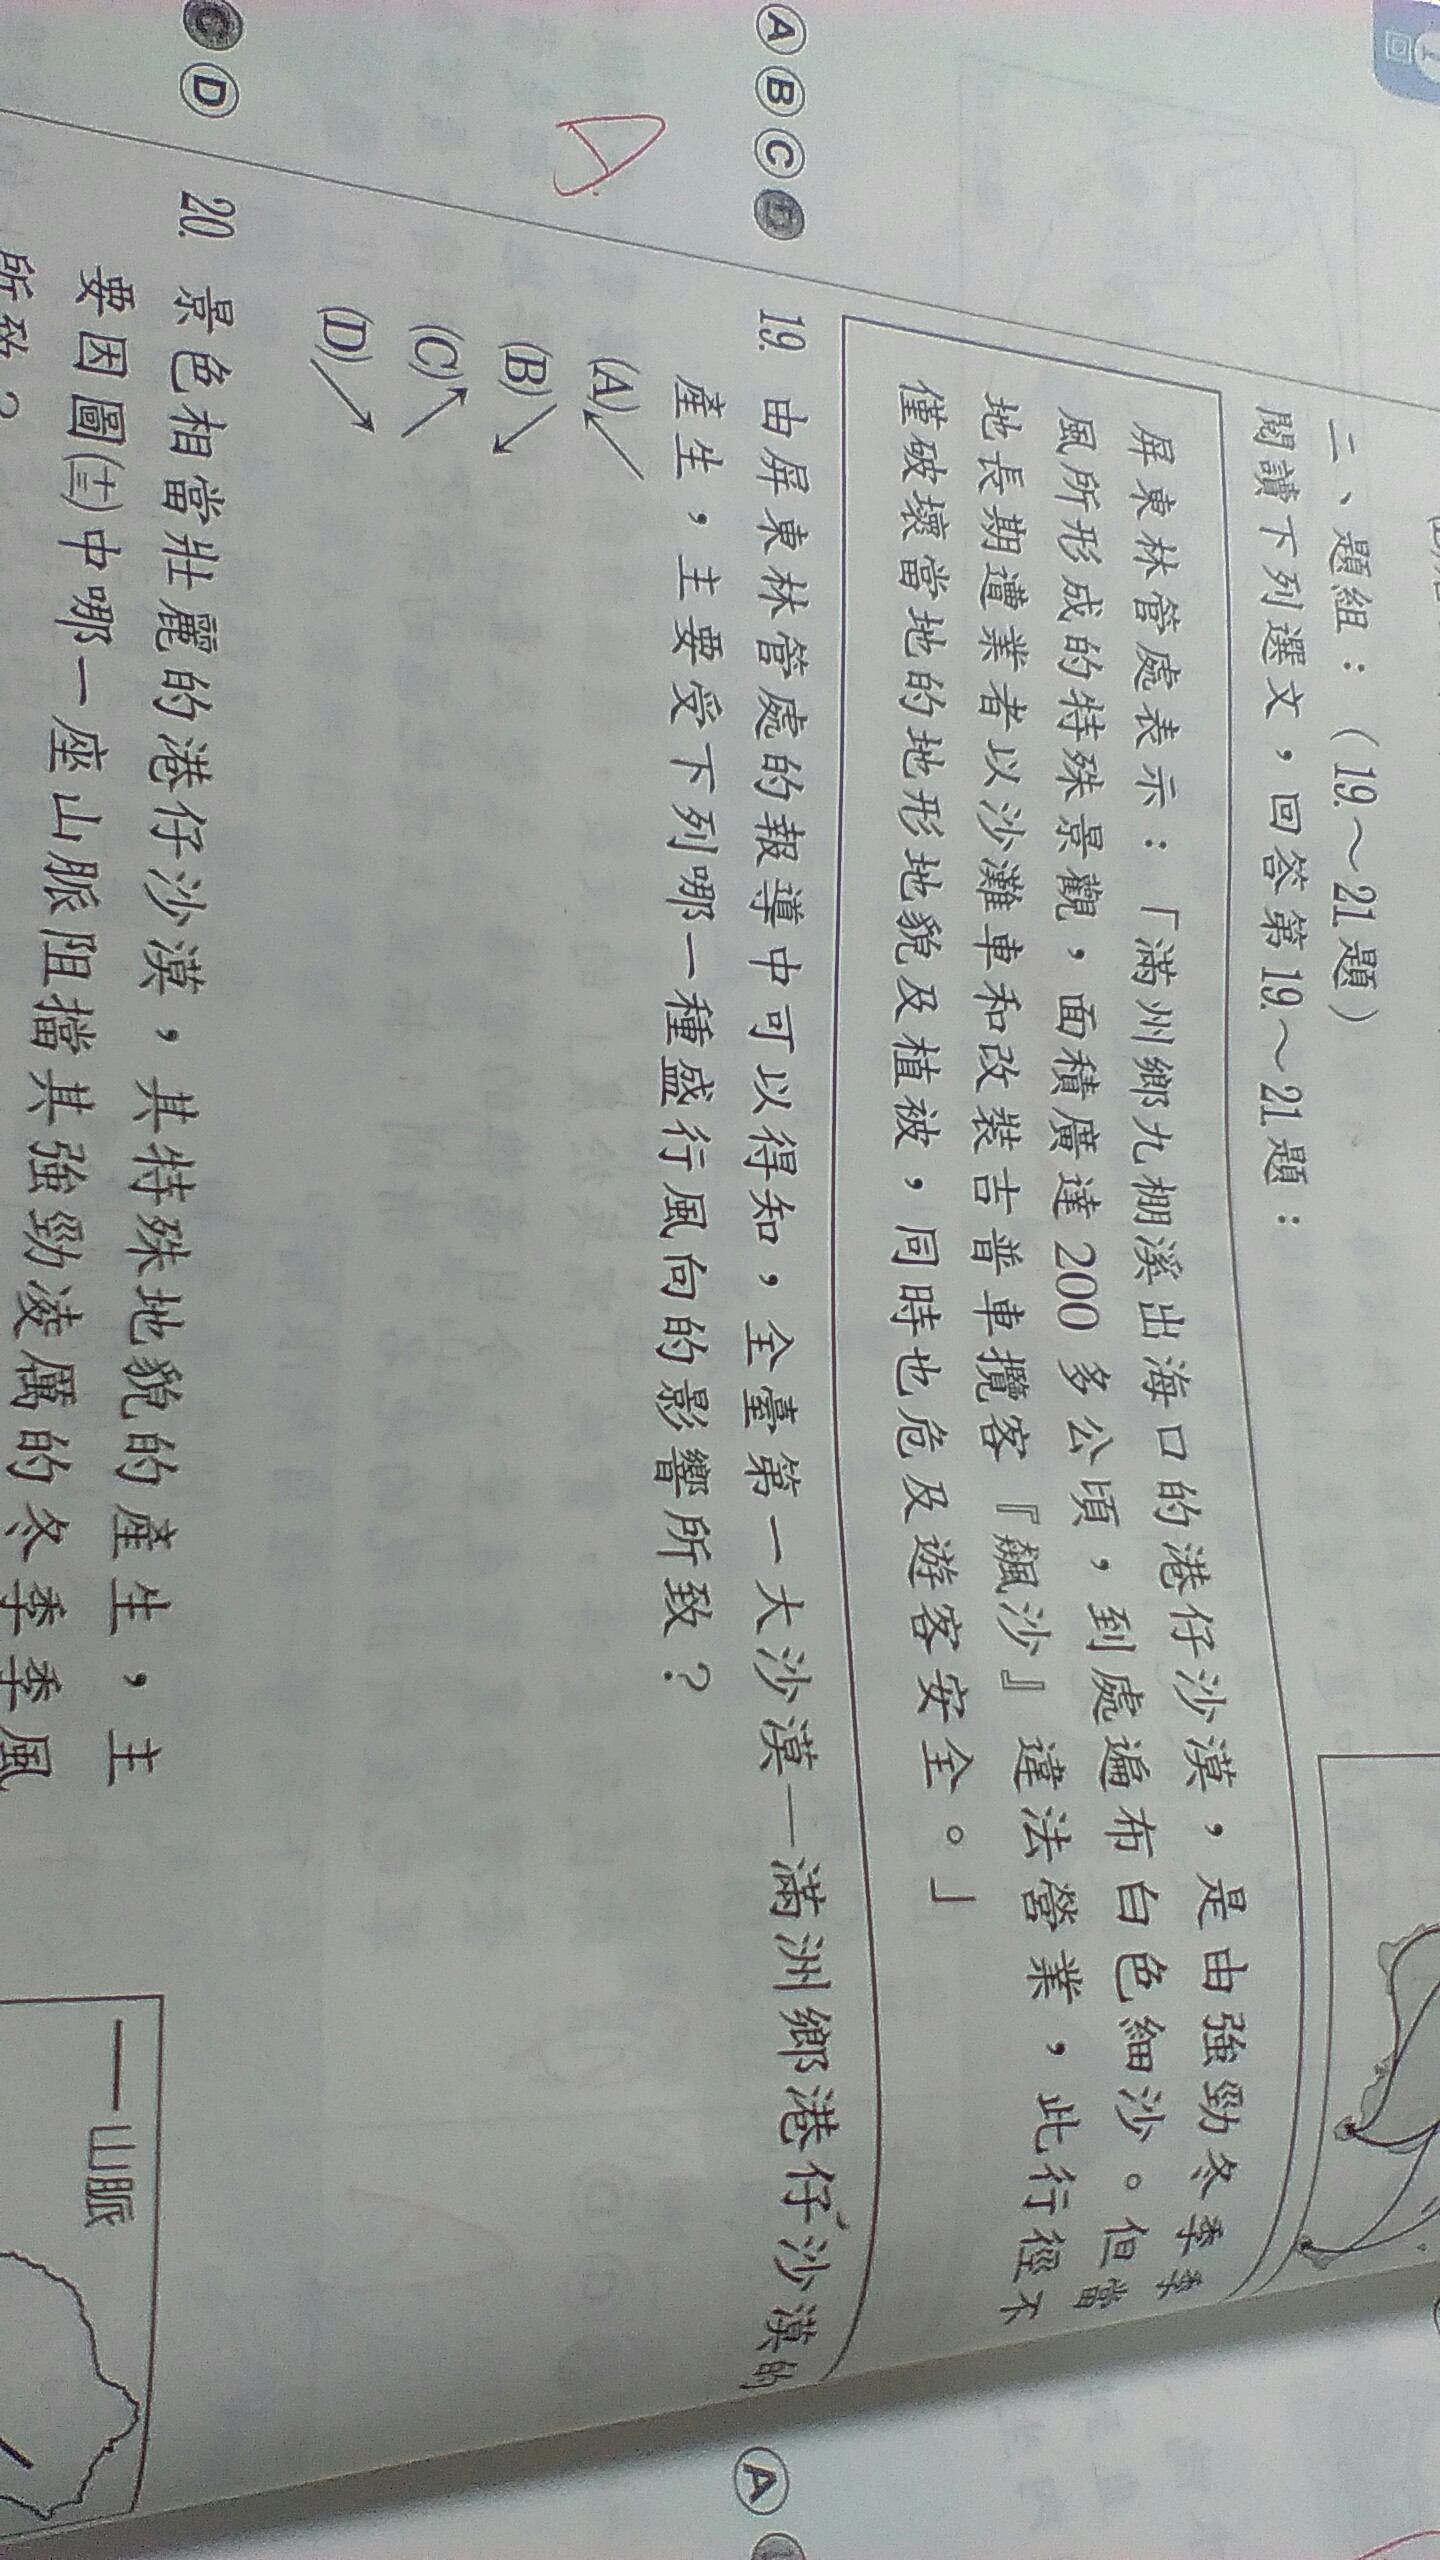 二、題組：（19.～21.題）
閱讀下列選文，回答第19.～21.題：
屏東林管處表示：「滿州鄉九棚溪出海口的港仔沙漠，是由強勁冬季季
風所形成的特殊景觀，面積廣達200多公頃，到處遍布白色細沙。但當
地長期遭業者以沙灘車和改裝吉普車攬客『飆沙』違法營業，此行徑不
僅破壞當地的地形地貌及植被，同時也危及遊客安全。」
Ⓐ Ⓑ Ⓒ Ⓓ 19. 由屏東林管處的報導中可以得知，全臺第一大沙漠—滿洲鄉港仔沙漠的
產生，主要受下列哪一種盛行風向的影響所致？
A
(A)↙
(B)↘
(C)↖
(D)↗
Ⓒ Ⓓ 20. 景色相當壯麗的港仔沙漠，其特殊地貌的產生，主
要因圖(十三)中哪一座山脈阻擋其強勁凌厲的冬季季風
所致？
—山脈
Ⓐ